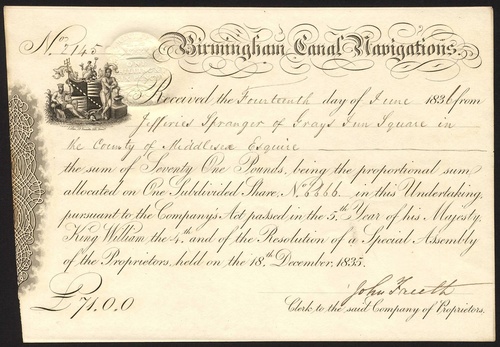 No. 2145
Birmingham Canal Navigations.
Received the Fourteenth day of June 1836 from
Jefferies Spranger of Grays Inn Square in
the County of Middlesex Esquire
the sum of Seventy One Pounds, being the proportional sum
allocated on One Subdivided Share, No. 6666 in this Undertaking,
pursuant to the Company's Act passed in the 5th Year of his Majesty,
King William the 4th and of the Resolution of a Special Assembly
of the Proprietors, held on the 18th December, 1835.
£71.0.0
John Freeth
Clerk to the said Company of Proprietors.